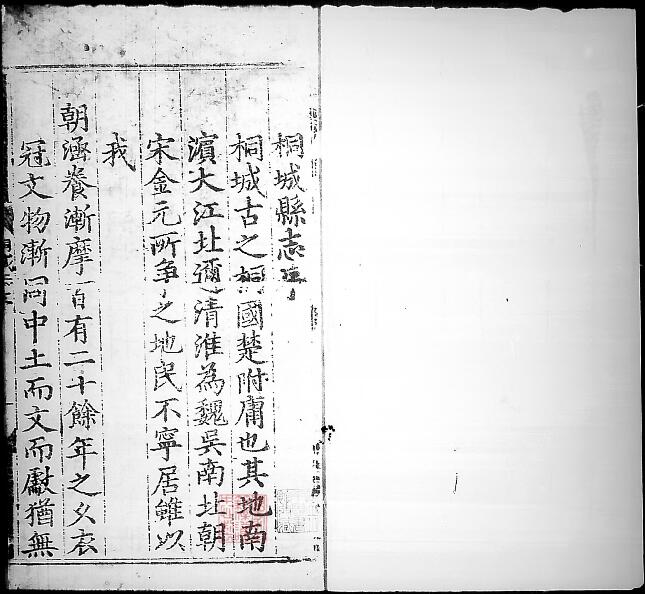 桐城縣志序
桐城古之桐國楚附庸也其地南
濱大江北邇清淮為魏吳南北朝
宋金元所爭之地民不寧居雖以
我
朝涵養漸摩百有二十餘年之久衣
冠文物漸同中土而文而獻猶無